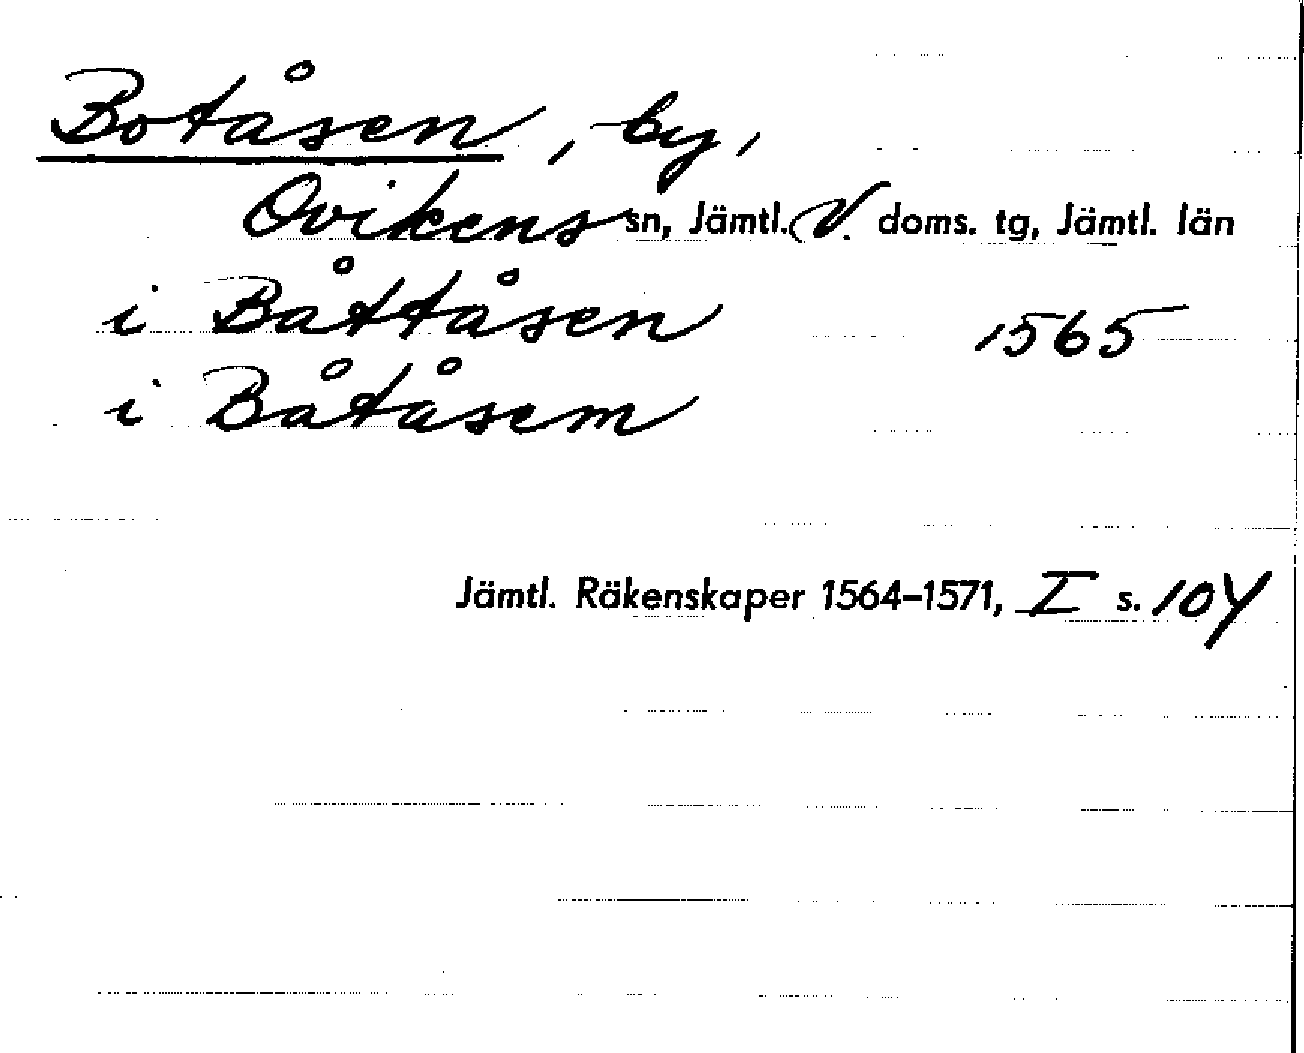 Botåsen, by,
Ovikens sn, Jämtl. V. doms. tg, Jämtl. län
i Båttåsen 1565
i Båtåsem
Jämtl. Räkenskaper 1564–1571, I s. 104